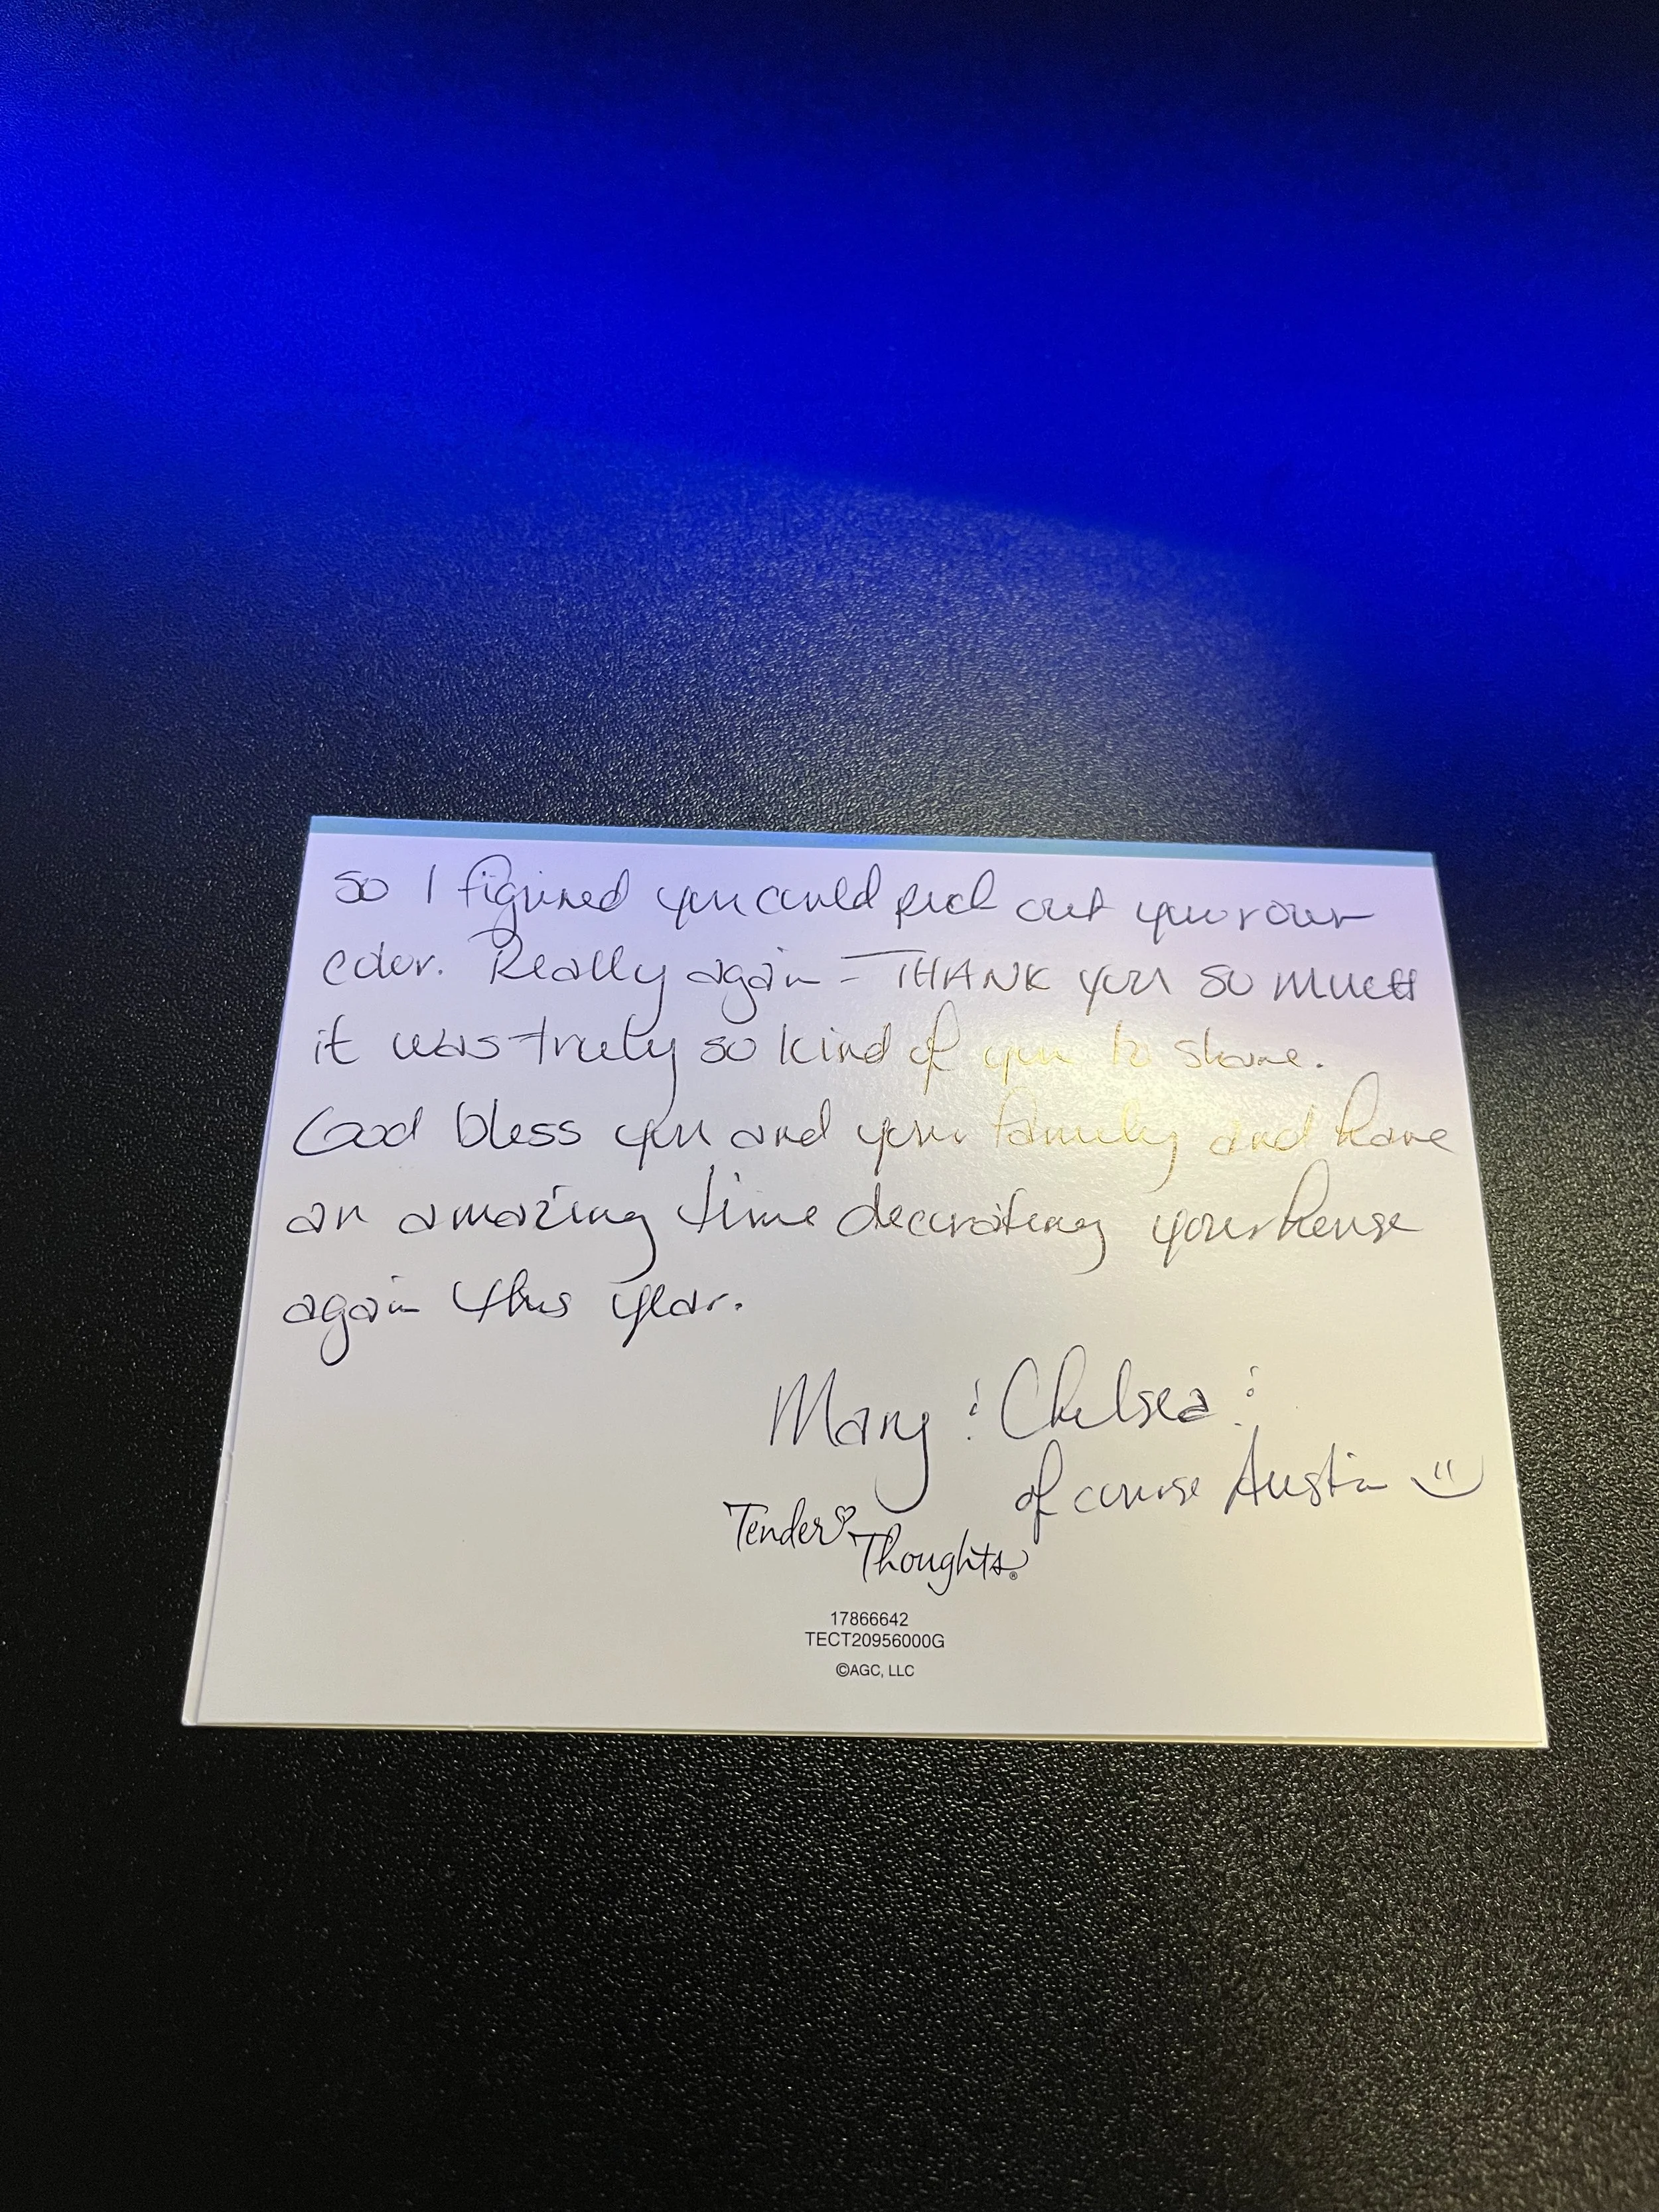 so I figured you could pick out your own
color. Really again - THANK you so much
it was truly so kind of you to share.
God bless you and your family and have
an amazing time decorating your house
again this year.
Mary & Chelsea &
of course Austin
Tender
Thoughts®
17866642
TECT20956000G
©AGC, LLC